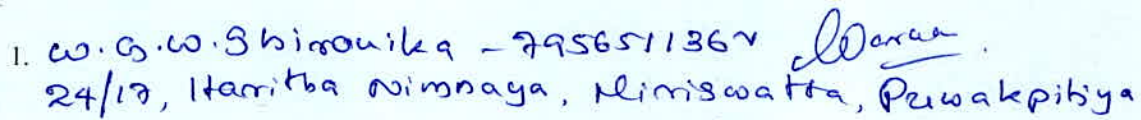 1. W.G.W.Shironika - 795651136V
24/17, Haritha Nimnaya, Miriswatta, Puwakpitiya